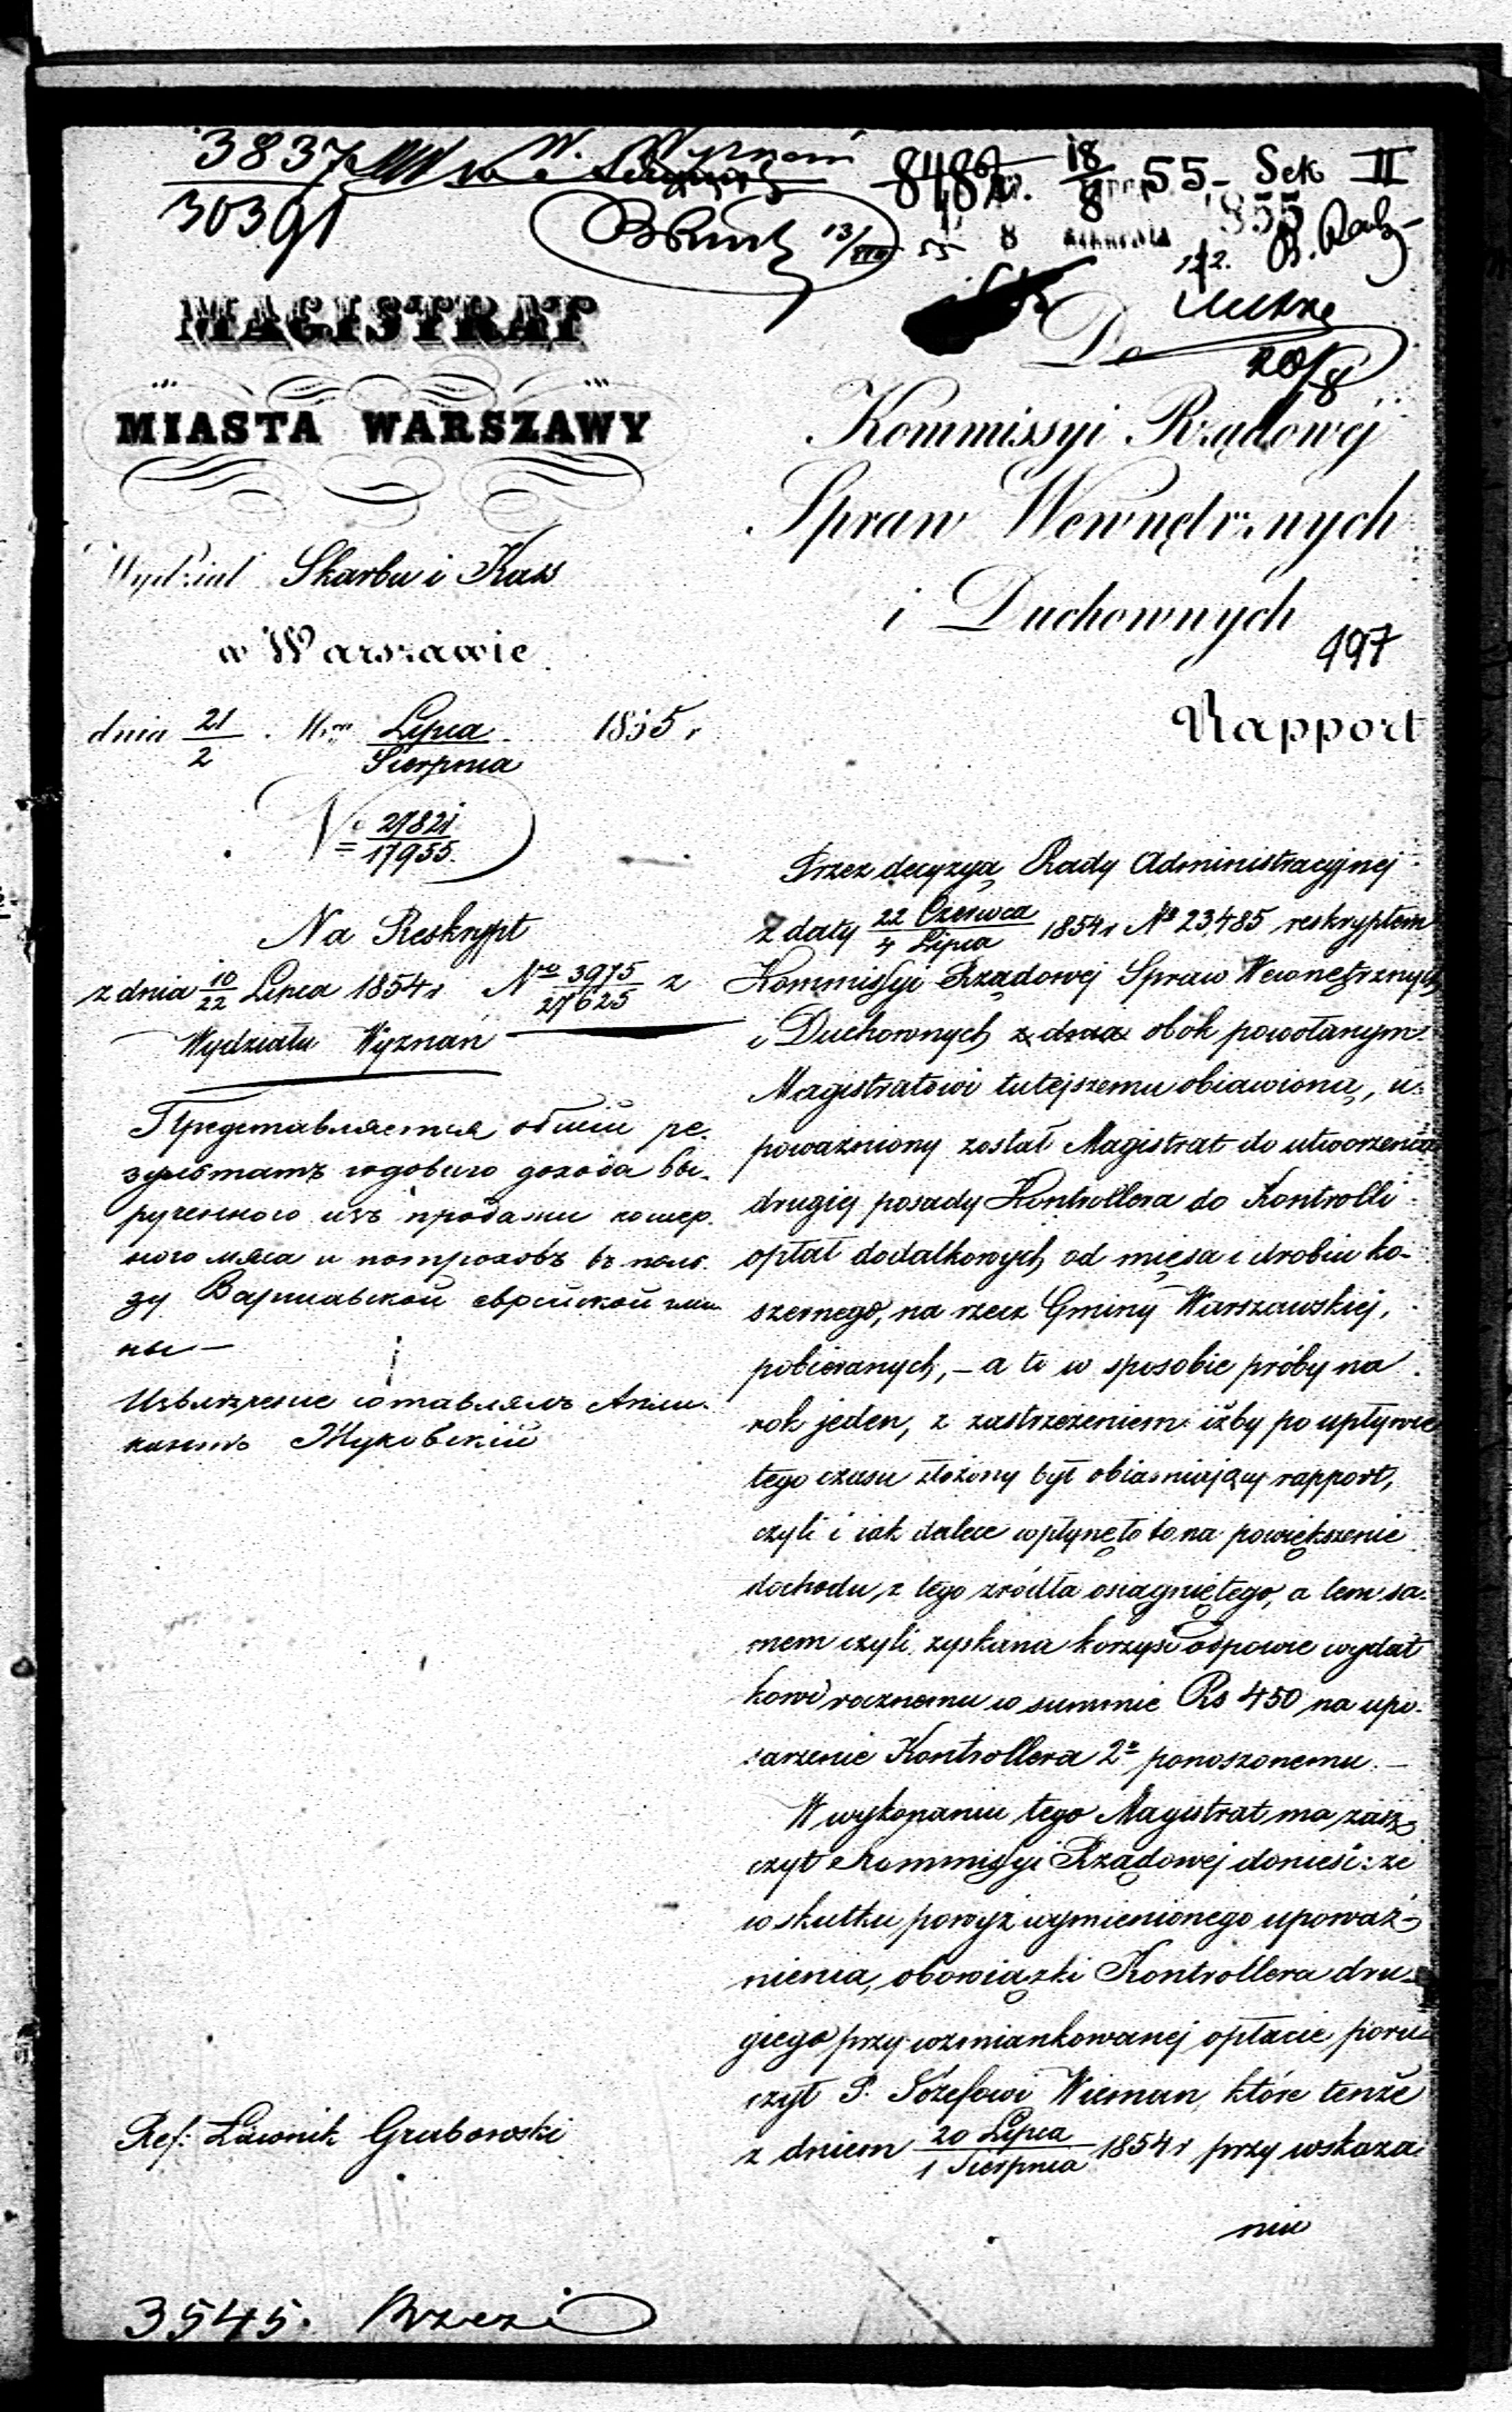 3837
30391
W. Wyznań
8487. 18/8 55, Sek II
13/VIII 55
8
855
B. Radz
20/8
MAGISTRAT
MIASTA WARSZAWY
Wydział Skarbu i Kass
w Warszawie
dnia 21/2 Mca Lipca/Sierpnia 1855 r.
No 27821/17955.
Na Reskrypt
z dnia 10/22 Lipca 1854 r No 3975/27625 z
Wydziału Wyznań
Представляется общій ре-
зультатъ годоваго дохода вы-
рученнаго изъ продажи кошер-
наго мяса и потроховъ въ поль-
зу Варшавской еврейской гми-
ны —
Извлеченіе составлялъ Аппли-
кантъ Жуковскій
Ref: Ławnik Grabowski
3545.
Do
Kommissyi Rządowéj
Spraw Wewnętrznych
i Duchownych
197
Rapport
Przez decyzyą Rady Administracyjnej
z daty 22 Czerwca/4 Lipca 1854 r No 23,485 reskryptem
Kommissyi Rządowej Spraw Wewnętrznych
i Duchownych z dnia obok powołanym
Magistratowi tutejszemu obiawioną, u-
poważniony został Magistrat do utworzenia
drugiej posady Kontrollera do Kontrolli
opłat dodatkowych od mięsa i drobiu ko-
szernego, na rzecz Gminy Warszawskiej,
pobieranych, – a to w sposobie próby na
rok jeden, z zastrzeżeniem iżby po upływie
tego czasu złożony był obiasniający rapport,
czyli i iak dalece wpłynęło to na powiększenie
dochodu z tego zródła osiągniętego, a tem sa-
mem czyli zyskana korzyść odpowie wydat
kowi rocznemu w summie Rs 450 na upo-
sarzenie Kontrollera 2o ponoszonemu. —
W wykonaniu tego Magistrat ma zasz-
czyt Kommissyi Rządowej donieść: że
w skutku powyż wymienionego upoważ-
nienia, obowiązki Kontrollera dru-
giego przy wzmiankowanej opłacie poru-
czył P. Józefowi Wieman, które tenże
z dniem 20 Lipca/1 Sierpnia 1854 r przy wskaza-
niu